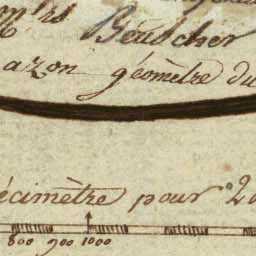 Beuscher
azon géomètre du
écimètre pour 20
800 900 1000